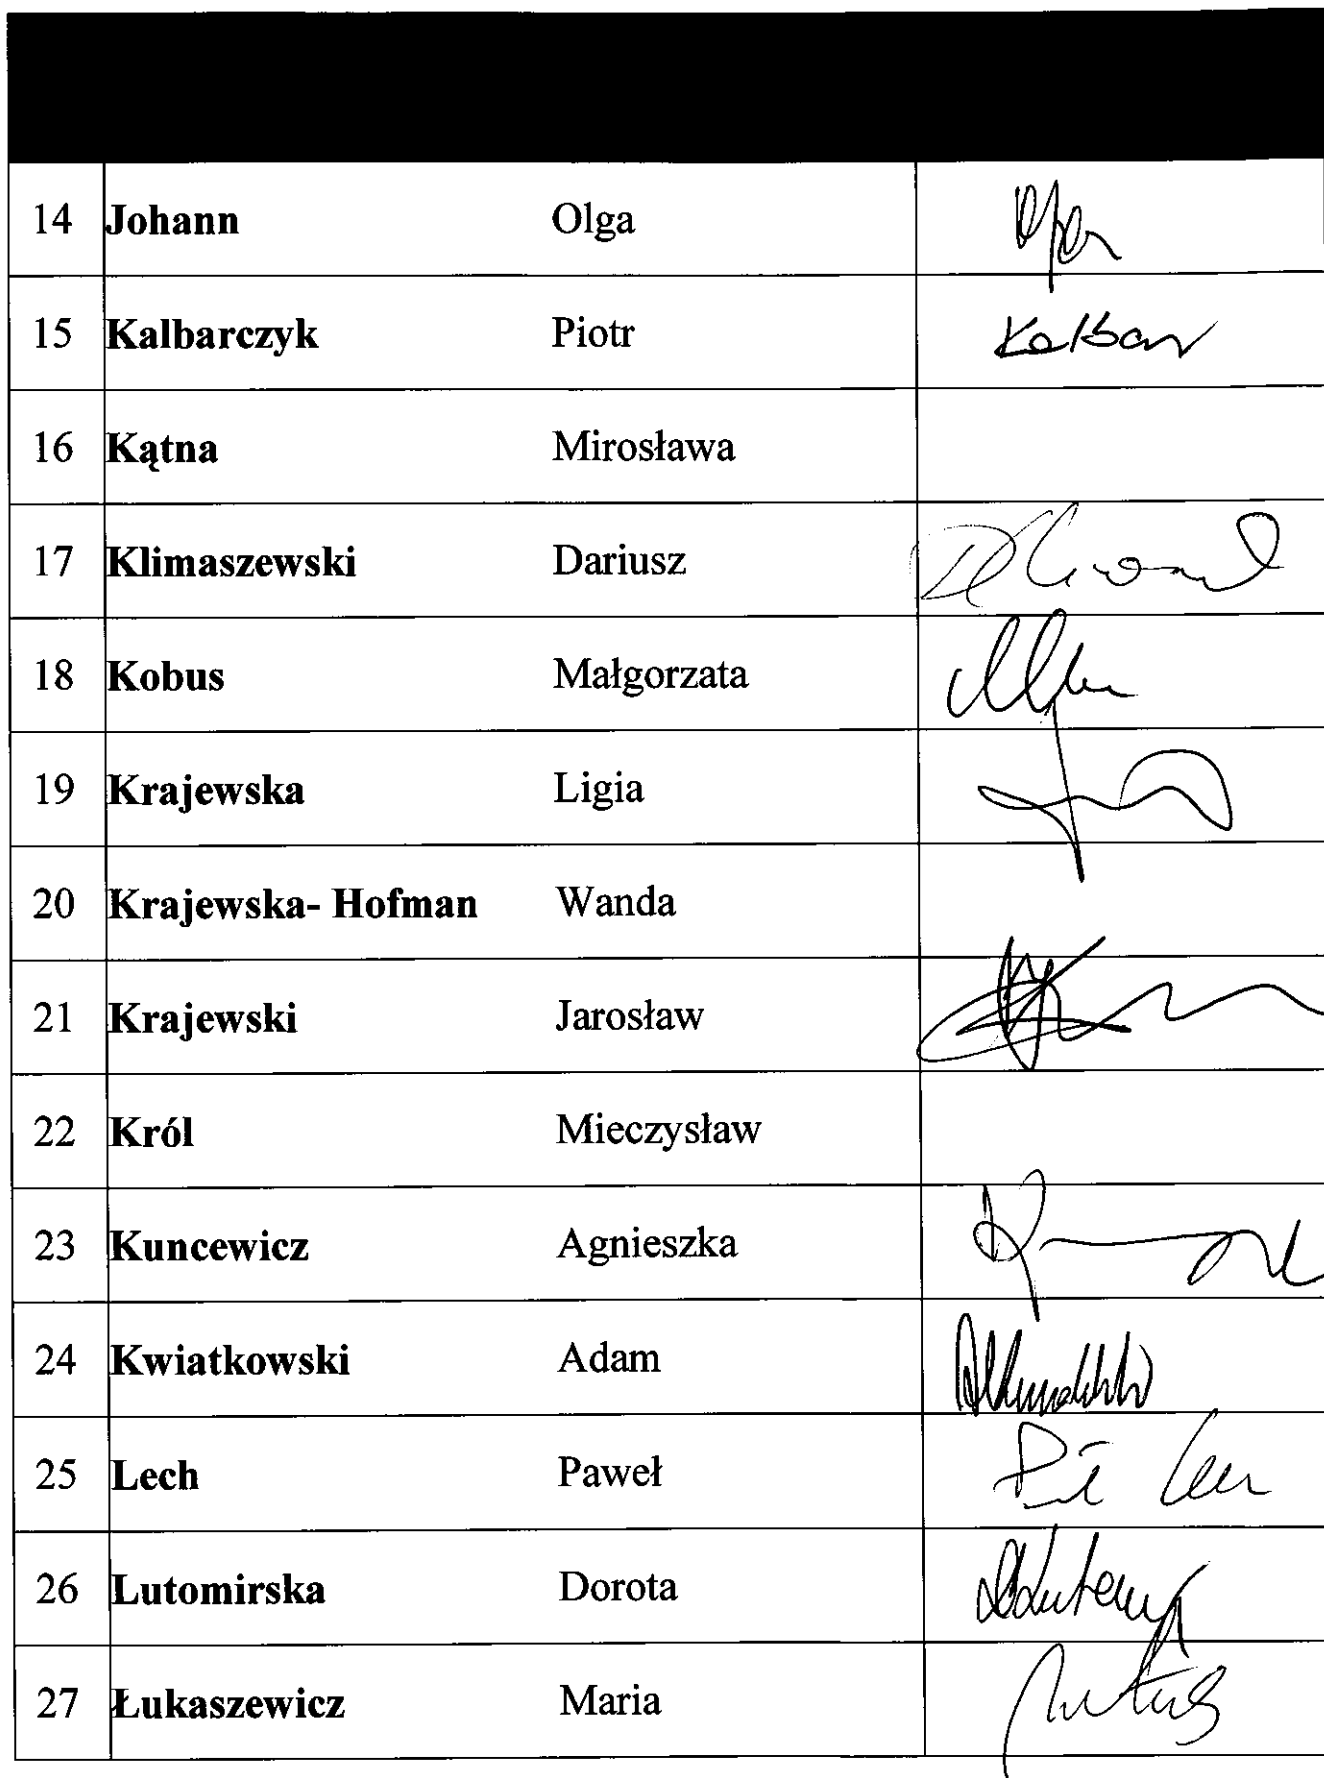 14 Johann Olga
15 Kalbarczyk Piotr Kalbar
16 Kątna Mirosława
17 Klimaszewski Dariusz
18 Kobus Małgorzata
19 Krajewska Ligia
20 Krajewska- Hofman Wanda
21 Krajewski Jarosław
22 Król Mieczysław
23 Kuncewicz Agnieszka
24 Kwiatkowski Adam
25 Lech Paweł
26 Lutomirska Dorota
27 Łukaszewicz Maria